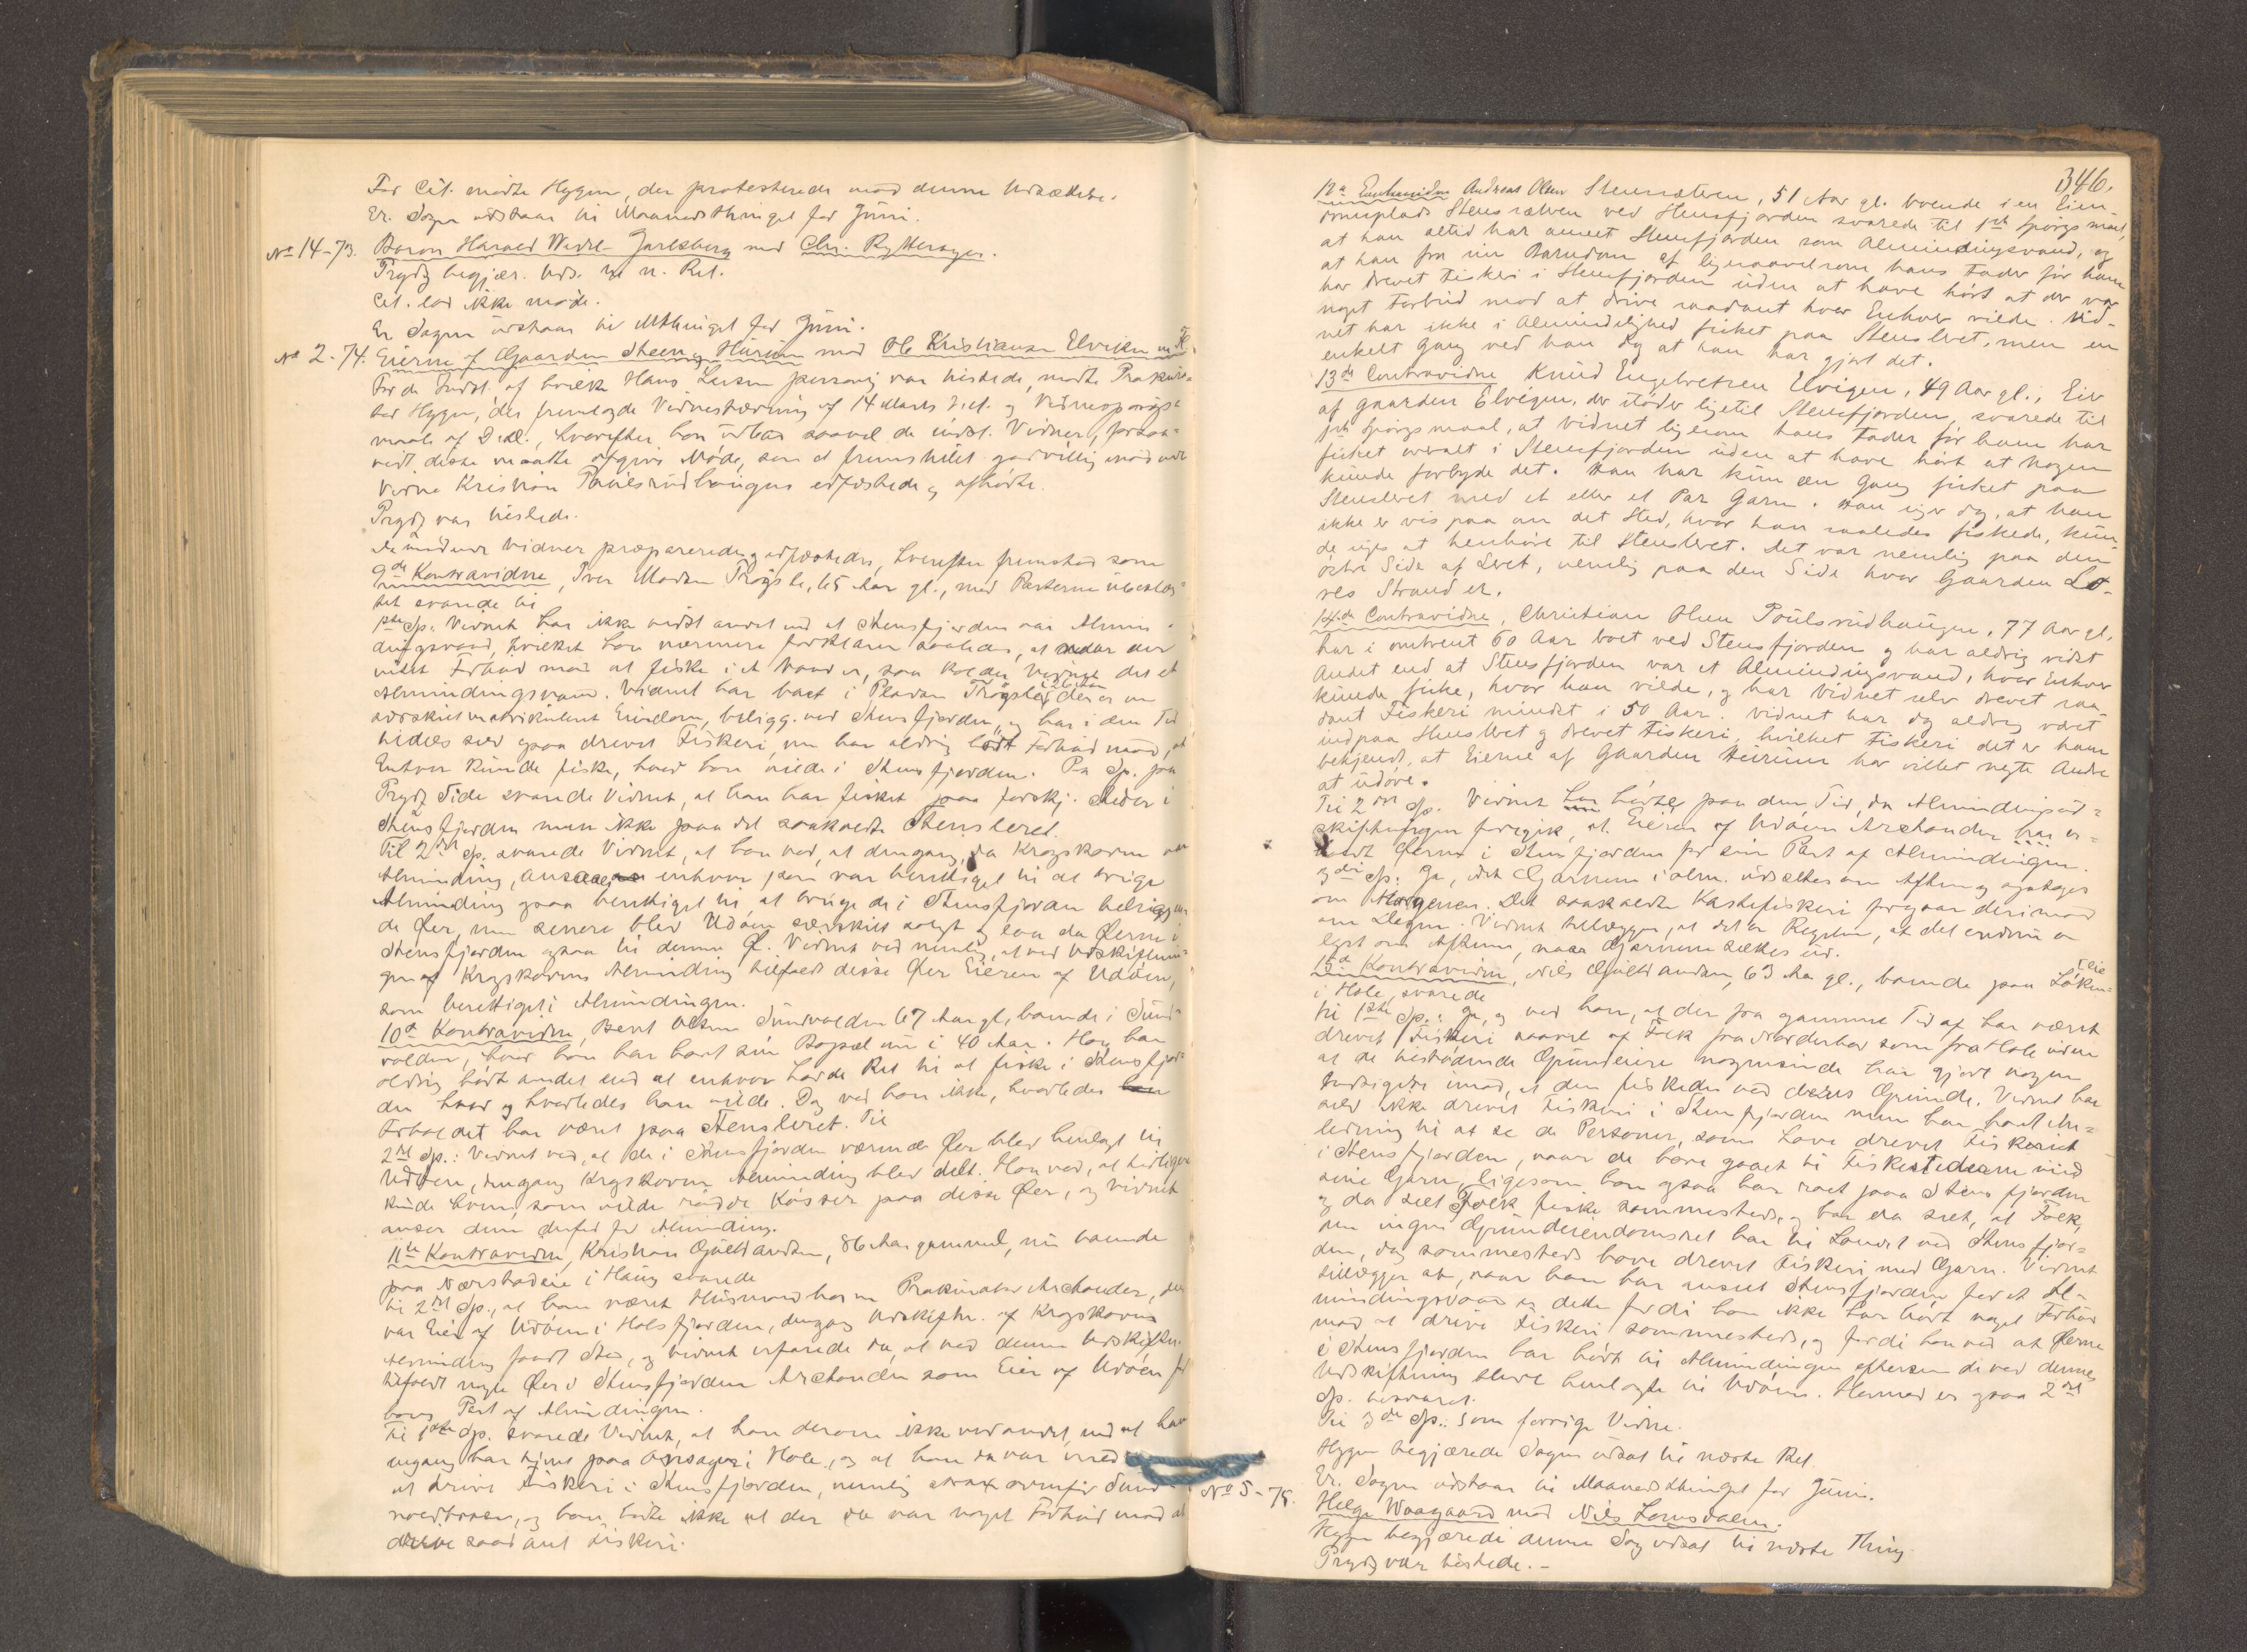 For Cit. mødte Hygen, der protesterede mod denne Udsættelse.
Er. Sagen udstaar til Maanedsthinget for Juni.
No 14-73. Baron Harald Wedel-Jarlsberg mod Chr. Rytterager.
Prydz begjær. Uds. til n. Ret.
Cit. lod ikke møde.
Er. Sagen udstaar til Mthinget for Juni.
No 2-74. Eierne af Gaardene Steen og Hurum mod Ole Kristiansen Elviken m. Fl.
For de Indst. af hvilke Hans Larsen personlig var tilstede, mødte Prokura-
tor Hygen, der fremlagde Vidnestævning af 14 Marts d. A. og Vidnespørgs-
maal af D. d., hvorefter han udbad saavel de indst. Vidner, foran-
vidt disse maatte afgive Møde, som et fremstillet godvillig mødende
Vidne Kristian Paulsrudhaugen edfæstede og afhørte.
Prydz var tilstede.
De mødende Vidner præpareredes og edfæstedes, hvorefter fremstod som
9de Kontravidne, Iver Madsen Trøgsle, 65 Aar gl., med Parterne ubeslæg-
tet svarede til
1ste Sp. Vidnet har ikke vidst andet end at Stensfjorden var Almin-
dingsvand, hvilket han nærmere forklarer saaledes, at naar der
intet Forbud mod at fiske i et Vand er, saa kalder Vidnet det et
Almindingsvand. Vidnet har boet i Pladsen Trøgsle i 26 Aar der er en
særskilt matrikuleret Eiendom, beligg. ved Stensfjorden, og har i den Tid
tildels selv ogsaa drevet Fiskeri, men har aldrig hørt Forbud mod, at
Enhver kunde fiske, hvor han vilde i Stensfjorden. Paa Sp. fra
Prydz Side svarede Vidnet, at han har fisket paa forskj. Steder i
Stensfjorden men ikke paa det saakaldte Stensleret.
Til 2det Sp. svarede Vidnet, at han ved, at dengang, da Krogskoven var
Alminding, ansaaes enhver som var berettiget til at bruge
Alminding ogsaa berettiget til at bruge de i Stensfjorden beliggen-
de Øer, men senere blev Udøen særskilt solgt og laa da Øerne i
Stensfjorden ogsaa til denne Ø. Vidnet ved nemlig, at ved Udskiftnin-
gen af Krogskovens Alminding tilfaldt disse Øer Eieren af Udøen,
som berettiget i Almindingen.
10de Kontravidne, Bent Olsen Sundvolden 67 Aar gl., boende i Sund-
volden, hvor han har havt sin Bopæl nu i 40 Aar. Han har
aldrig hørt andet end at enhver havde Ret til at fiske i Stensfjor-
den hvor og hvorledes han vilde. Dog ved han ikke, hvorledes
Forholdet har været paa Stensleret. Til
2det Sp.: Vidnet ved, at de i Stensfjorden værende Øer blev henlagt til
Udøen, dengang Krogskovens Alminding blev delt. Han ved, at tidligere
kunde hvem, som vilde rødde Kosser paa disse Øer, og Vidnet
anser dem derfor for Alminding.
11te Kontravidne, Kristian Gulbrandsen, 86 Aar gammel, nu boende
paa Nærstadeie i Haug svarede
til 2det Sp., at han været Husmand hos en Prokurator Archander, der
var Eier af Udøen i Holsfjorden, dengang Udskiftn. af Krogskovens
Alminding fandt Sted, og Vidnet erfarede da, at ved denne Udskiftn.
tilfaldt nogle Øer i Stensfjorden Archander som Eier af Udøen for
hans Part af Almindingen.
Til 1ste Sp. svarede Vidnet, at han derom ikke ved andet, end at han
engang har tjent paa Onsager i Hole, og at han da var med
at drive Fiskeri i Stensfjorden, nemlig strax ovenfor Sund-
voldbroen, og han hørte ikke at der da var noget Forbud mod at
drive saadant Fiskeri.
346.
12te Contravidne Andreas Olsen Stensrætven, 51 Aar gl. boende i en Eien-
domsplads Stensrætven ved Stensfjorden svarede til 1ste Spørgsmaal,
at han altid har anseet Stensfjorden som Almindingsvand, og
at han fra sin Barndom af ligesaavelsom hans Fader før ham
har drevet Fiskeri i Stensfjorden uden at have hørt at der var
noget Forbud mod at drive saadant hvor Enhver vilde. Vid-
net har ikke i Almindelighed fisket paa Stensleret, men en
enkelt Gang ved han dog at han har gjort det.
13de Contravidne Knud Engebretsen Elvigen, 49 Aar gl., Eier
af Gaarden Elvigen, der støder ligetil Stensfjorden, svarede til
1ste Spørgsmaal, at Vidnet ligesom hans Fader før ham har
fisket overalt i Stensfjorden uden at have hørt at Nogen
kunde forbyde det. Han har kun en Gang fisket paa
Stensleret med et eller et Par Garn. Han siger dog, at han
ikke er vis paa om det Sted, hvor han saaledes fiskede, kun-
de siges at henhøre til Stensleret. Det var nemlig paa den
østre Side af Leret, nemlig paa den Side hvor Gaarden Lo-
res Strand er.
14de Contravidne, Christian Olsen Poulsrudhaugen, 77 Aar gl.
har i omtrent 60 Aar boet ved Stensfjorden og har aldrig vidst
Andet end at Stensfjorden var et Almindingsvand, hvor Enhver
kunde fiske, hvor han vilde, og har Vidnet selv drevet saa-
dant Fiskeri mindst i 50 Aar. Vidnet har dog aldrig været
indpaa Stensleret og drevet Fiskeri, hvilket Fiskeri det er ham
bekjendt, at Eierne af Gaarden Heirum har villet negte Andre
at udøve.
Til 2det Sp. Vidnet hørte paa den Tid, da Almindingsud-
skiftningen foregik, at Eieren af Udøen Archander har er-
holdt Øerne i Stensfjorden for sin Part af Almindingen.
3die Sp. Ja, idet Garnene i alm. udsættes om Aftenen og optages
om Morgenen. Det saakaldte Kastefiskeri foregaar derimod
om Dagen. Vidnet tillægger, at det er Regelen, at det endnu er
lyst om Aftenen, naar Garnene sættes ud.
15de Kontravidne, Nils Gulbrandsen, 63 Aar gl., boende paa Løken-
eie
i Hole, svarede
til 1ste Sp.: Ja, og ved han, at der fra gammel Tid af har været
drevet Fiskeri saavel af Folk fra Norderhov som fra Hole uden
at de tilstødende Grundeiere nogensinde har gjort nogen
Indsigelse imod, at den fiskedes ved deres Grunde. Vidnet har
selv ikke drevet Fiskeri i Stensfjorden men har havt An-
ledning til at se de Personer, som have drevet Fiskeriet
i Stensfjorden, naar de have gaaet til Fiskestederne med
sine Garn, ligesom han ogsaa har roet paa Stensfjorden
og da seet Folk fiske sommesteds, og han da seet, at Folk,
som ingen Grundeiendomsret har til Landet ved Stensfjor-
den, dog sommesteds have drevet Fiskeri med Garn. Vidnet
tillægger at, naar han har anseet Stensfjorden for et Al-
mindingsvand er dette fordi han ikke har hørt noget Forbud
mod at drive Fiskeri sommesteds, og fordi han ved at Øerne
i Stensfjorden har hørt til Almindingen eftersom de ved dennes
Udskiftning bleve henlagte til Udøen. Hermed er ogsaa 2det
Sp. besvaret.
Til 3die Sp.: Som forrige Vidne.
Hygen begjærede Sagen udsat til næste Ret.
Er. Sagen udstaar til Maanedsthinget for Juni.
No 5-75. Helge Waagaard mod Nils Lomsdalen.
Hygen begjærede denne Sag udsat til næste Thing.
Prydz var tilstede.-